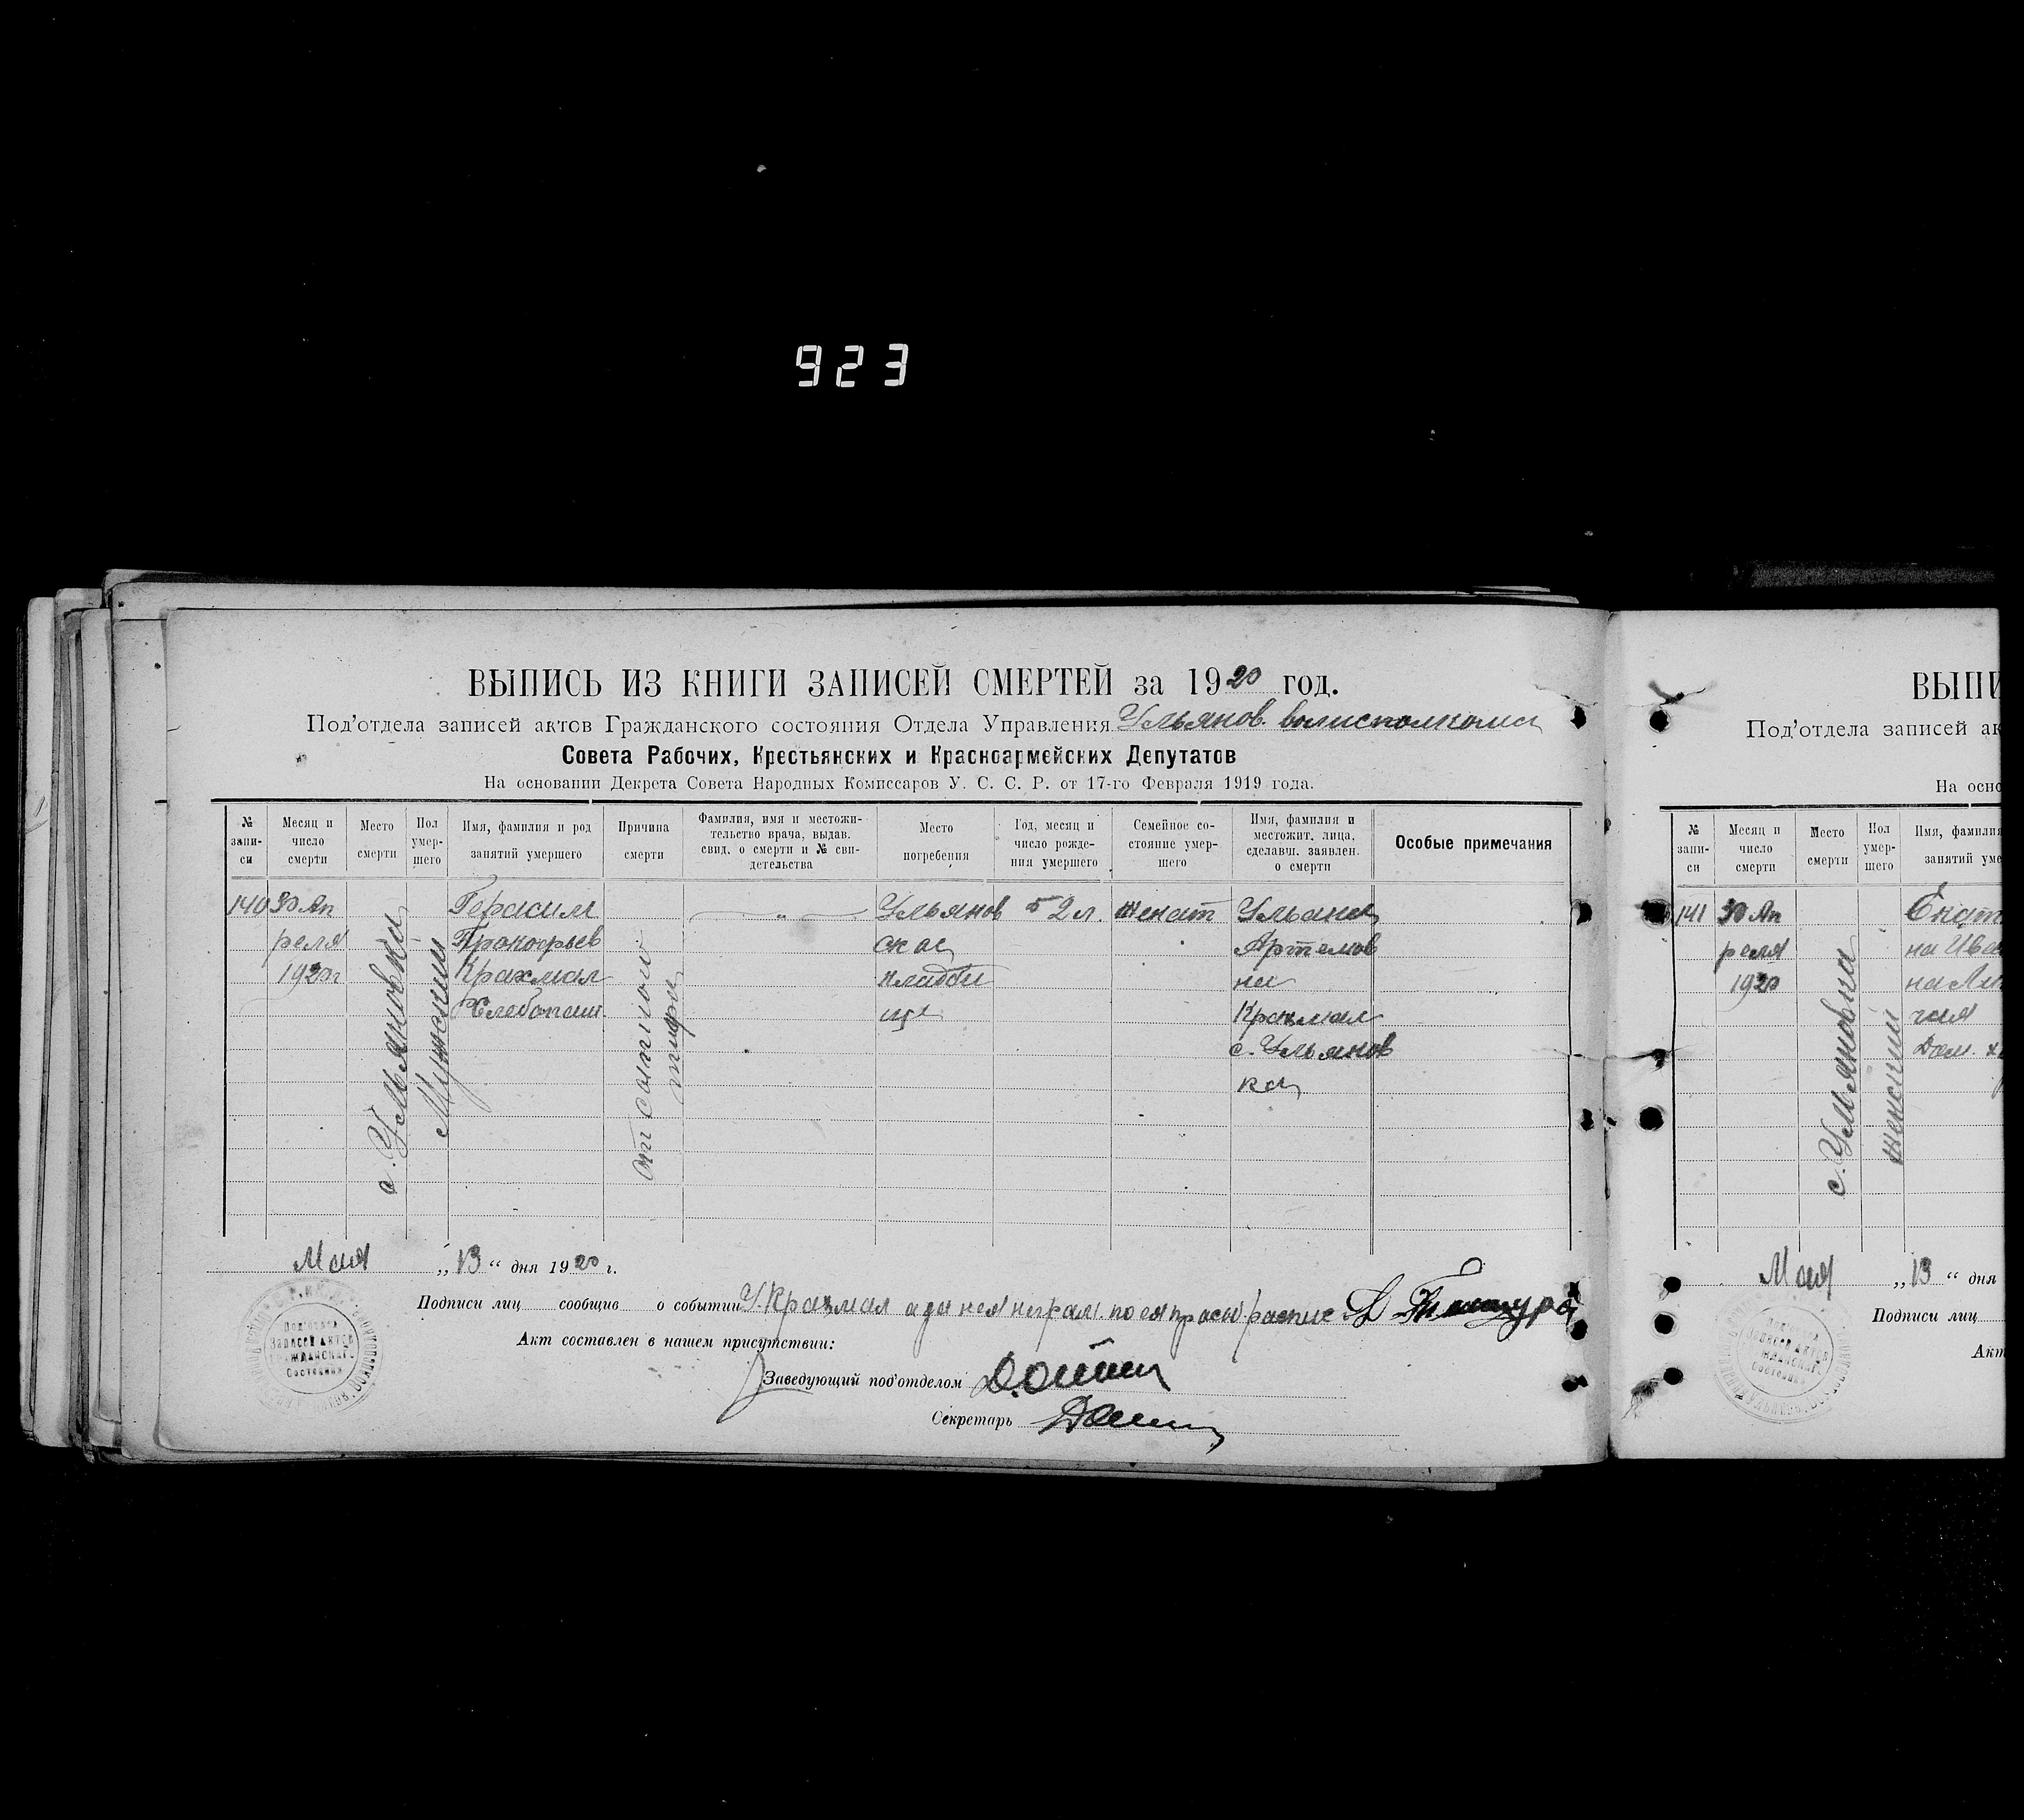 923
ВЫПИСЬ ИЗ КНИГИ ЗАПИСЕЙ СМЕРТЕЙ за 1920 год.
Под'отдела записей актов Гражданского состояния Отдела Управления Ульянов. волисполкома
Совета Рабочих, Крестьянских и Красноармейских Депутатов
На основании Декрета Совета Народных Комиссаров У. С. С. Р. от 17-го Февраля 1919 года.
№ запи-си
Месяц и число смерти
Место смерти
Пол умер-шего
Имя, фамилия и род занятий умершего
Причина смерти
Фамилия, имя и местожи-тельство врача, выдав. свид. о смерти и № сви-детельства
Место погребения
Год, месяц и число рожде-ния умершего
Семейное со-стояние умер-шего
Имя, фамилия и местожит. лица, сделавш. заявлен. о смерти
Особые примечания
140
30 Ап
реля
1920 г
с. Ульяновка
Мужский
Герасим
Прокофьев
Крахмал
Хлебопаш.
от сыпного
тифа
„
Ульянов
ская
кладби
ще
52 л.
женат
Ульяна
Артемов
на
Крахмал
с. Ульянов
ка
Мая „13“ дня 1920 г.
Подписи лиц сообщив о событии У. Крахмал а за нея неграм. по ея прозьб распис
Акт составлен в нашем присутствии:
Заведующий под'отделом
Секретарь
Под'отдел
Записей актов
Гражданскаго
Состояния
ВЫПИ
Под'отдела записей ак
На осно
№ запи-си
Месяц и число смерти
Место смерти
Пол умер-шего
Имя, фамилия
занятий уме
141
30 Ап
реля
1920
с. Ульяновка
женский
Екат
на Ива
на
чая
Дом. х
Мая „13“ дня
Подписи лиц
Акт